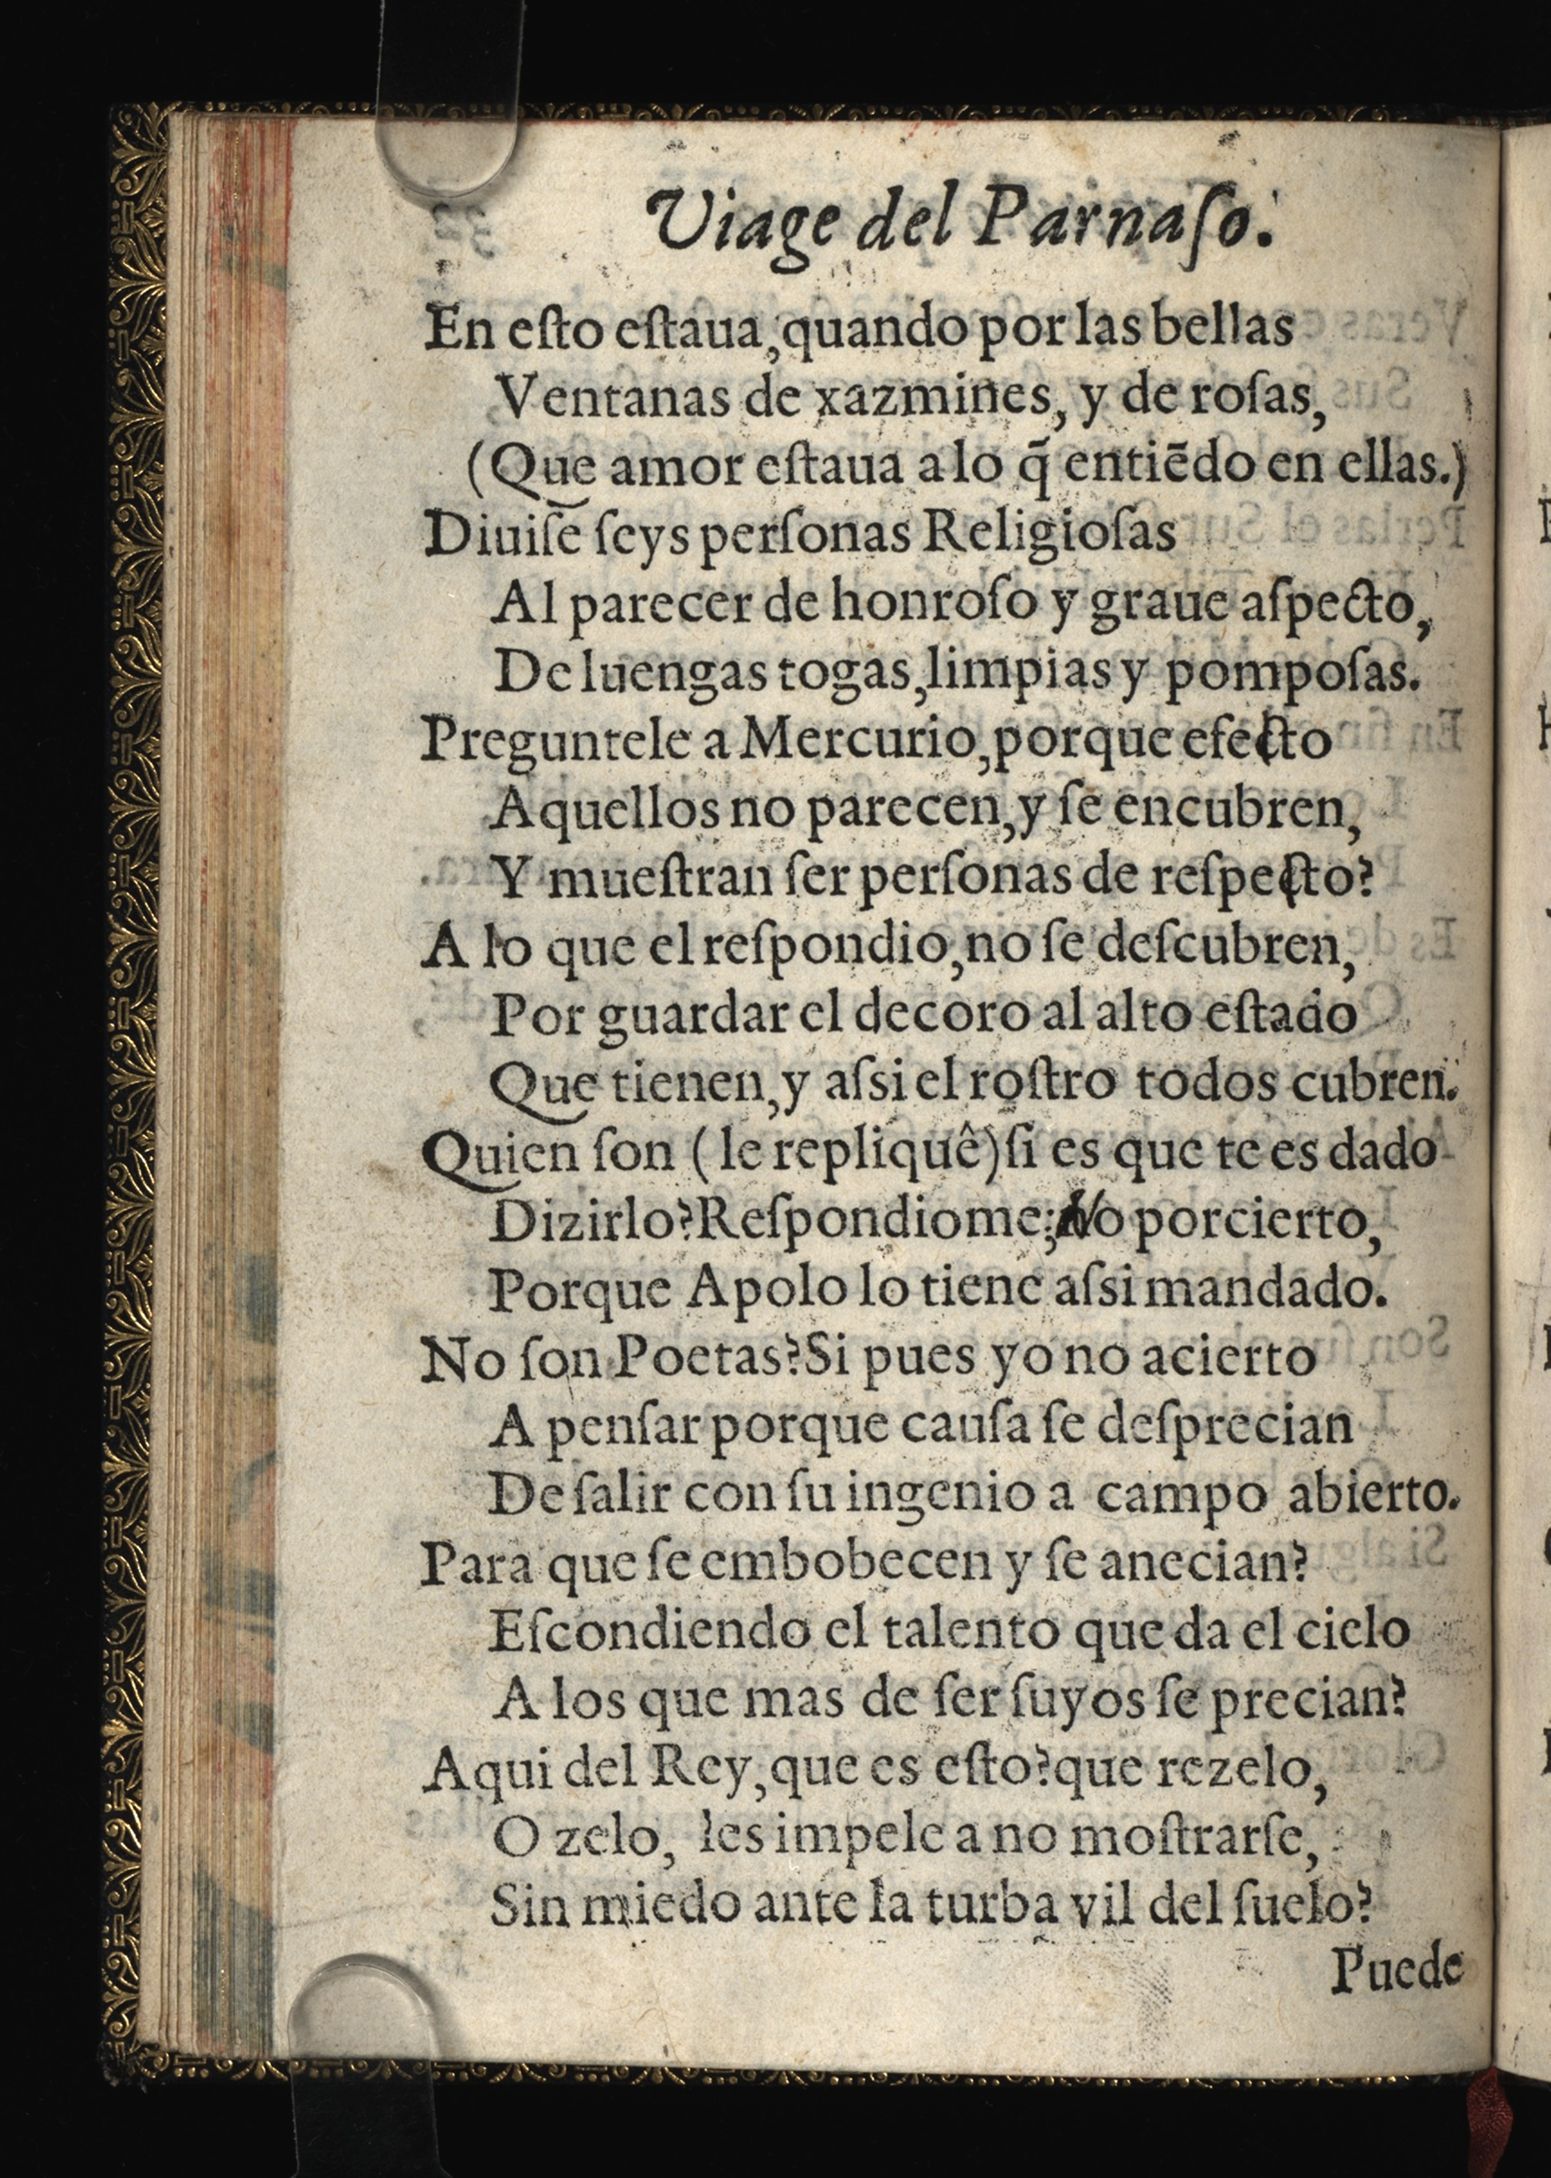 Viage del Parnaſo.
En eſto eſtaua, quando por las bellas
Ventanas de xazmines, y de roſas,
(Que amor eſtaua a lo q̃ entiẽdo en ellas.)
Diuiſe ſeys perſonas Religioſas
Al parecer de honroſo y graue aſpecto,
De luengas togas, limpias y pompoſas.
Preguntele a Mercurio, porque efecto
Aquellos no parecen, y ſe encubren,
Y mueſtran ſer perſonas de reſpecto?
A lo que el reſpondio, no ſe deſcubren,
Por guardar el decoro al alto eſtado
Que tienen, y aſsi el roſtro todos cubren.
Quien ſon (le repliquê) ſi es que te es dado
Dizirlo? Reſpondiome; No porcierto,
Porque Apolo lo tiene aſsi mandado.
No ſon Poetas? Si pues yo no acierto
A penſar porque cauſa ſe deſprecian
De ſalir con ſu ingenio a campo abierto.
Para que ſe embobecen y ſe anecian?
Eſcondiendo el talento que da el cielo
A los que mas de ſer ſuyos ſe precian?
Aqui del Rey, que es eſto? que rezelo,
O zelo, les impele a no moſtrarſe,
Sin miedo ante la turba vil del ſuelo?
Puede